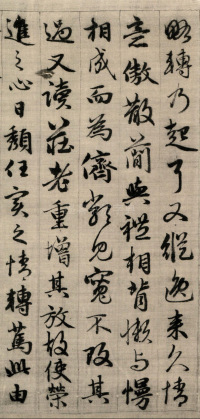 略轉乃起耳又縱逸来久情
意傲散簡與禮相背懶与慢
相成而為儕類見寬不攻其
過又讀莊老重增其放故使榮
進之心日頹任實之情轉篤此由